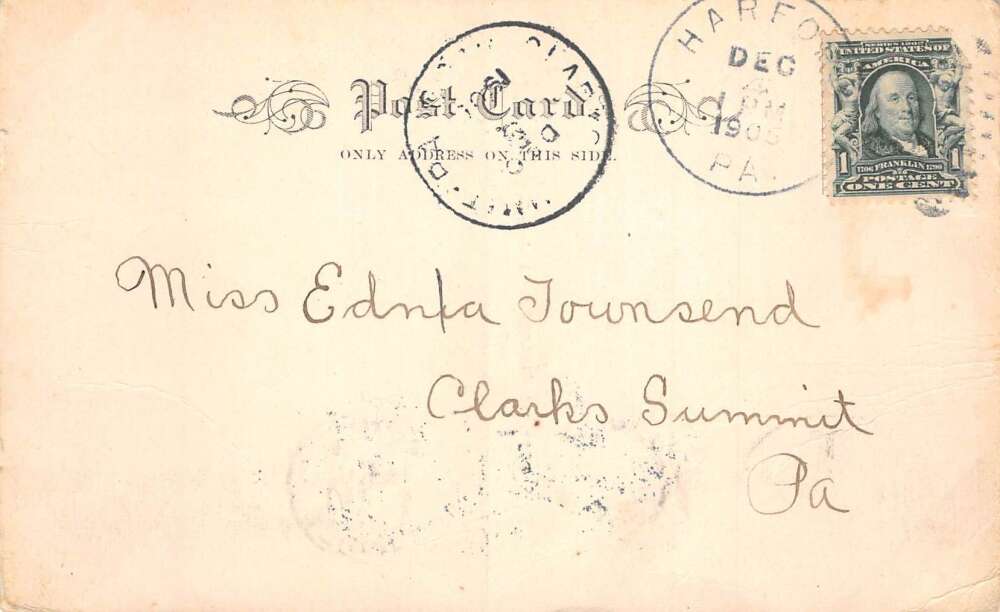 Post Card
ONLY ADDRESS ON THIS SIDE.
HARFO
DEC
1905
PA.
SERIES 1902
UNITED STATES OF
AMERICA
1
1706 FRANKLIN 1790
1
POSTAGE
ONE CENT
Miss Edna Townsend
Clarks Summit
Pa